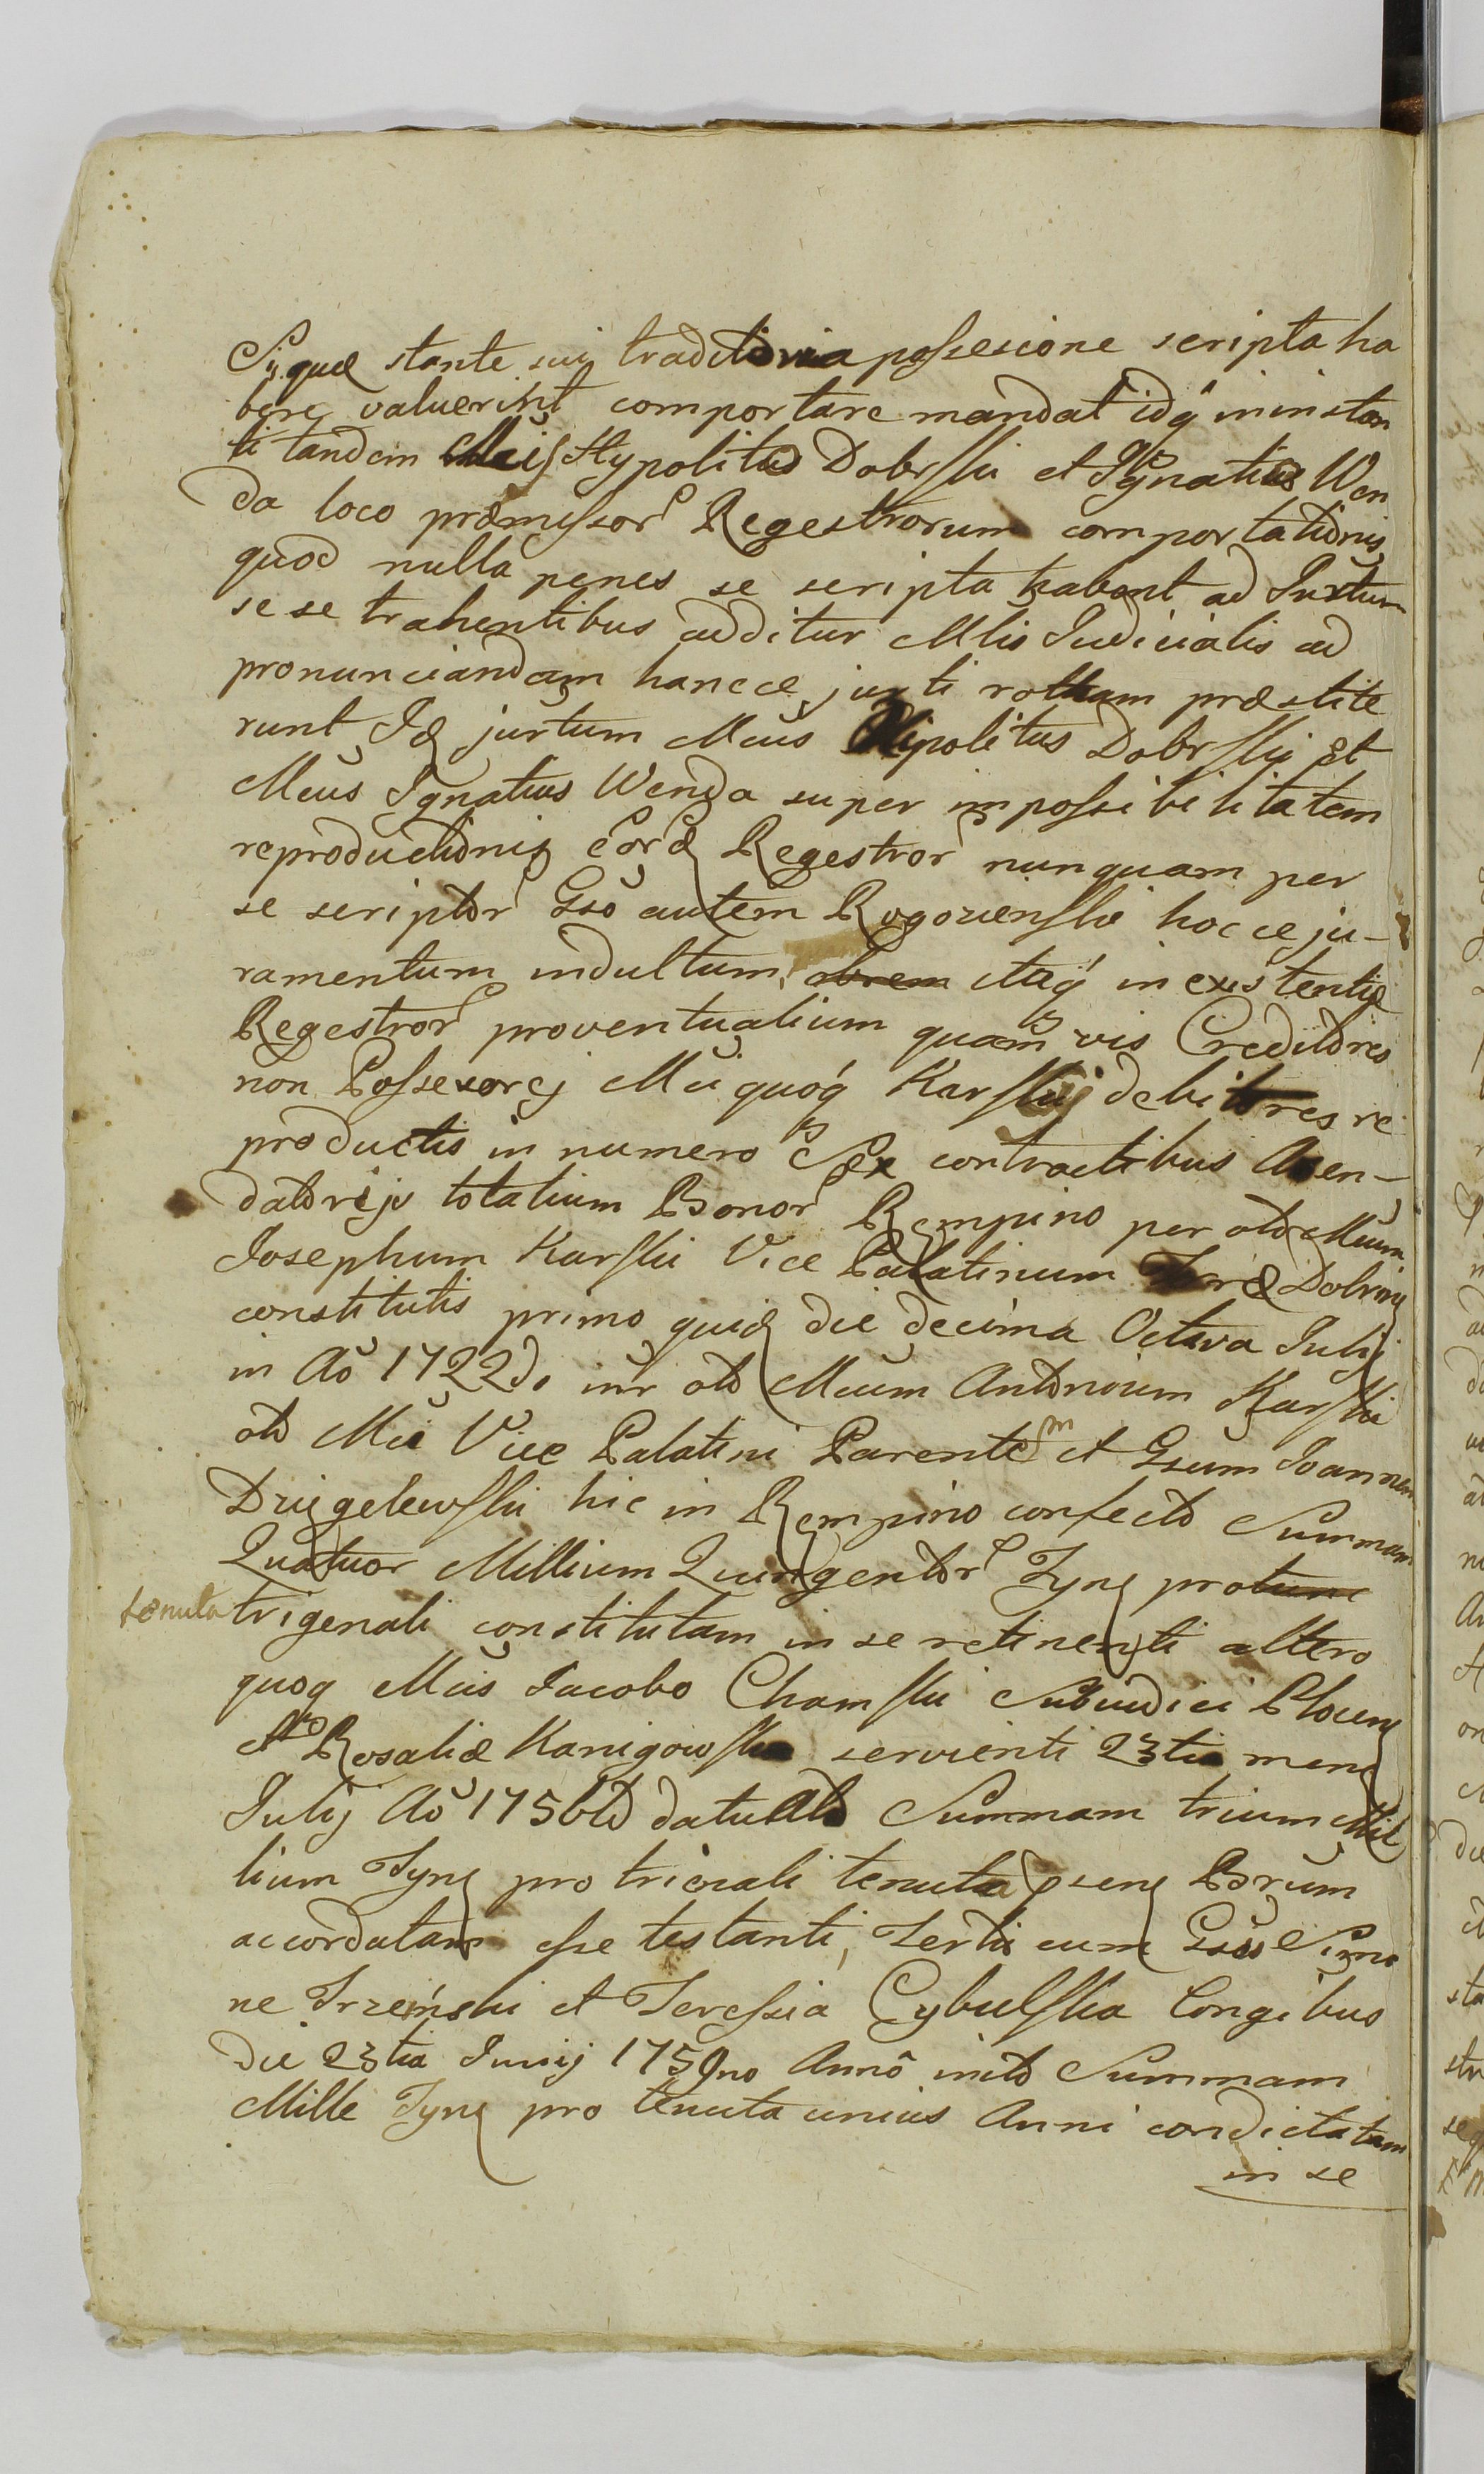 Siquæ stante sui traditoria possesione scripta ha
bere valuerint comportare mandat idq́ in instan
ti tandem Mcis Hypolitus Dobrski et Ignatius Wen
da loco præmissor Regestrorum comportationis
quod nulla penes se scripta habent ad Jurtum
sese trahentibus additur Mlis Judicialis ad
pronunciandam hancce jurti rottam præstite
runt Id jurtum Mcus Hipolitus Dobrski Et
Mcus Ignatius Wenda super impossibilitatem
reproductionis eord Regestror nunquam per
se scriptor Gso autem Rogowensko hocce ju-
ramentum indultum, itaq́ in existentia
Regestror proventualium quam vis Creditores
non Possesores Mci quoq́ Karskij debitores re
productis in numero Sex contractibus Aren-
datorijs totalium Bonor Rempino per olo Mcum
Josephum Karski Vice Palatinum Træ Dobrinj
constitutis primo quid die decima Octava Julij
in Aõ 1722do inr olo Mcum Antonium Karski
olo Mci Vice Palatini Parentem et Gsum Joannem
Drizgelewski hic in Rempino confecto Summam
Quatuor Millium Quingentor Tyng protunc
tenuta trigenali constitutam in se retinenti altero
quoq Mcis Jacobo Chamski Subiudici Plocens
et Rosaliæ Kanigowska servienti 23tia mens
Julij Aõ 1756to datuato Summam trium Mil
lium Tyng pro trienali tenuta psens Borum
accordatam esse testanti, Tertio cum Gsis Simo
ne Trzeiński et Teressia Cybulska Congibus
die 23tia Junij 1759no Annô inito Summam
Mille Tyng pro tenuta unius Anni condictatam
in se